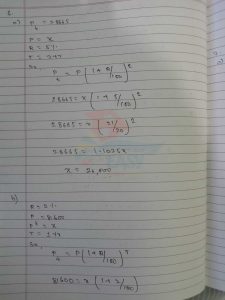 2.
a) P_t = 28665
P = x
R = 5%
T = 2 yr
So,
P_t = P(1 + R/100)^2
28665 = x(1 + 5/100)^2
28665 = x(21/20)^2
28665 = 1.1025x
x = 26,000
b)
P_t = 81600
P = x
T = 2 yr
So,
P_t = P(1 + R/100)^T
81600 = x(1 + 2/100)